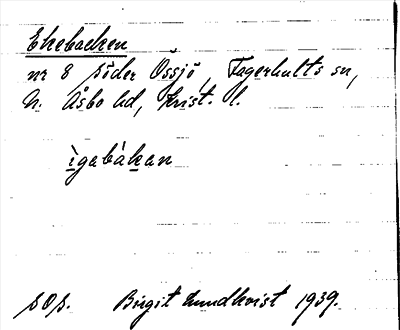 Ekebacken
nr 8 söder Össjö, Fagerhults sn,
N. Åsbo hd, Krist. l.
ìgabàkan
sOs. Birgit Lundkvist 1939.